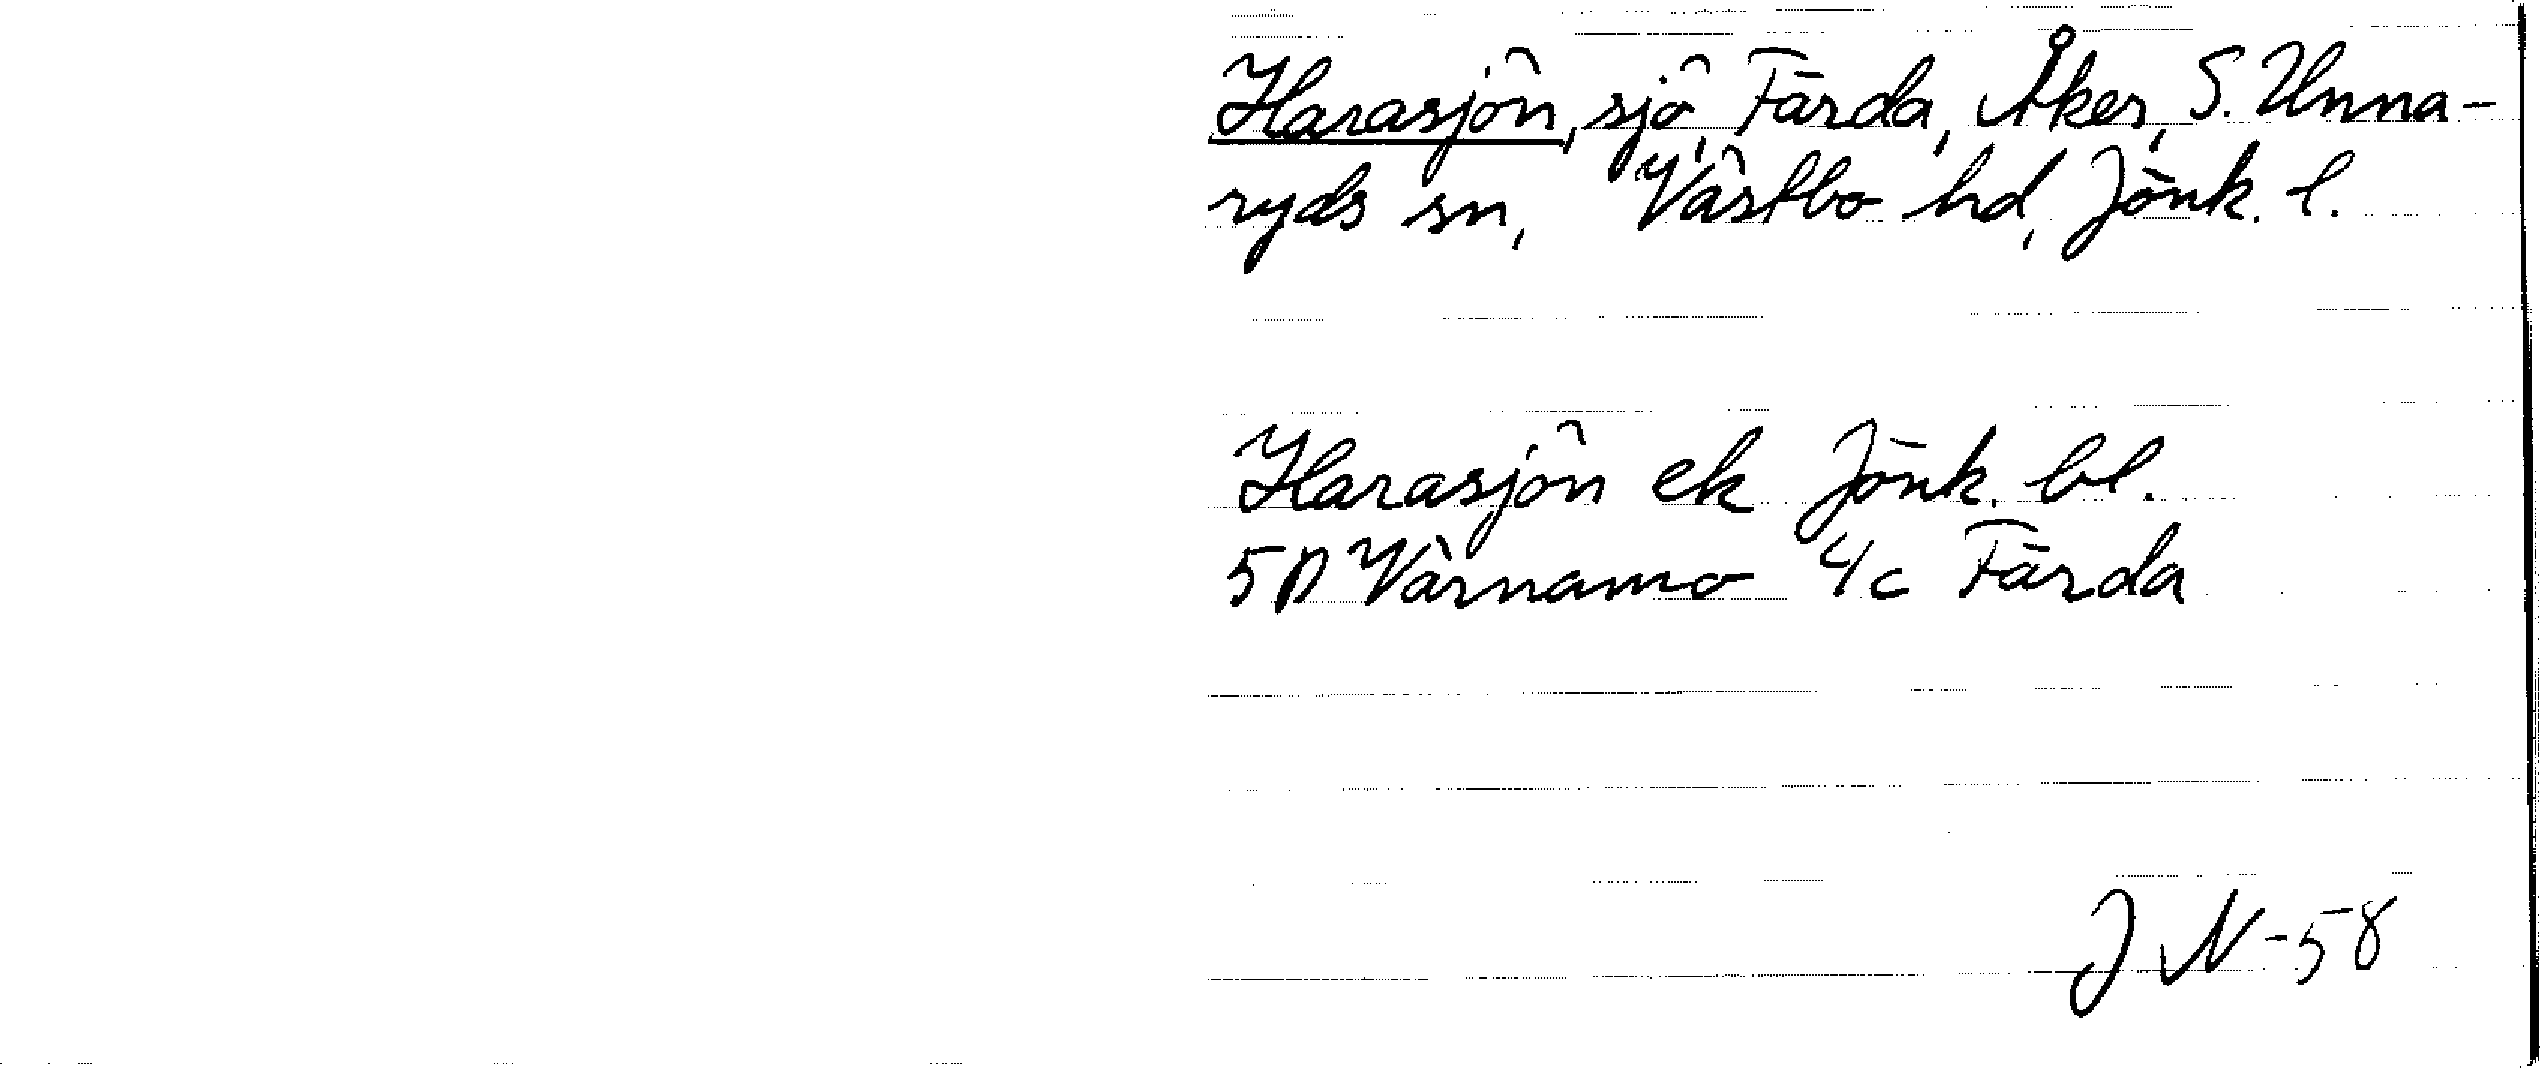 Harasjön, sjö, Färda, Åker, S. Unna-
ryds sn, Västbo hd, Jönk. l.
Harasjön ek Jönk. bl.
5D Värnamo 4c Färda
J N-58